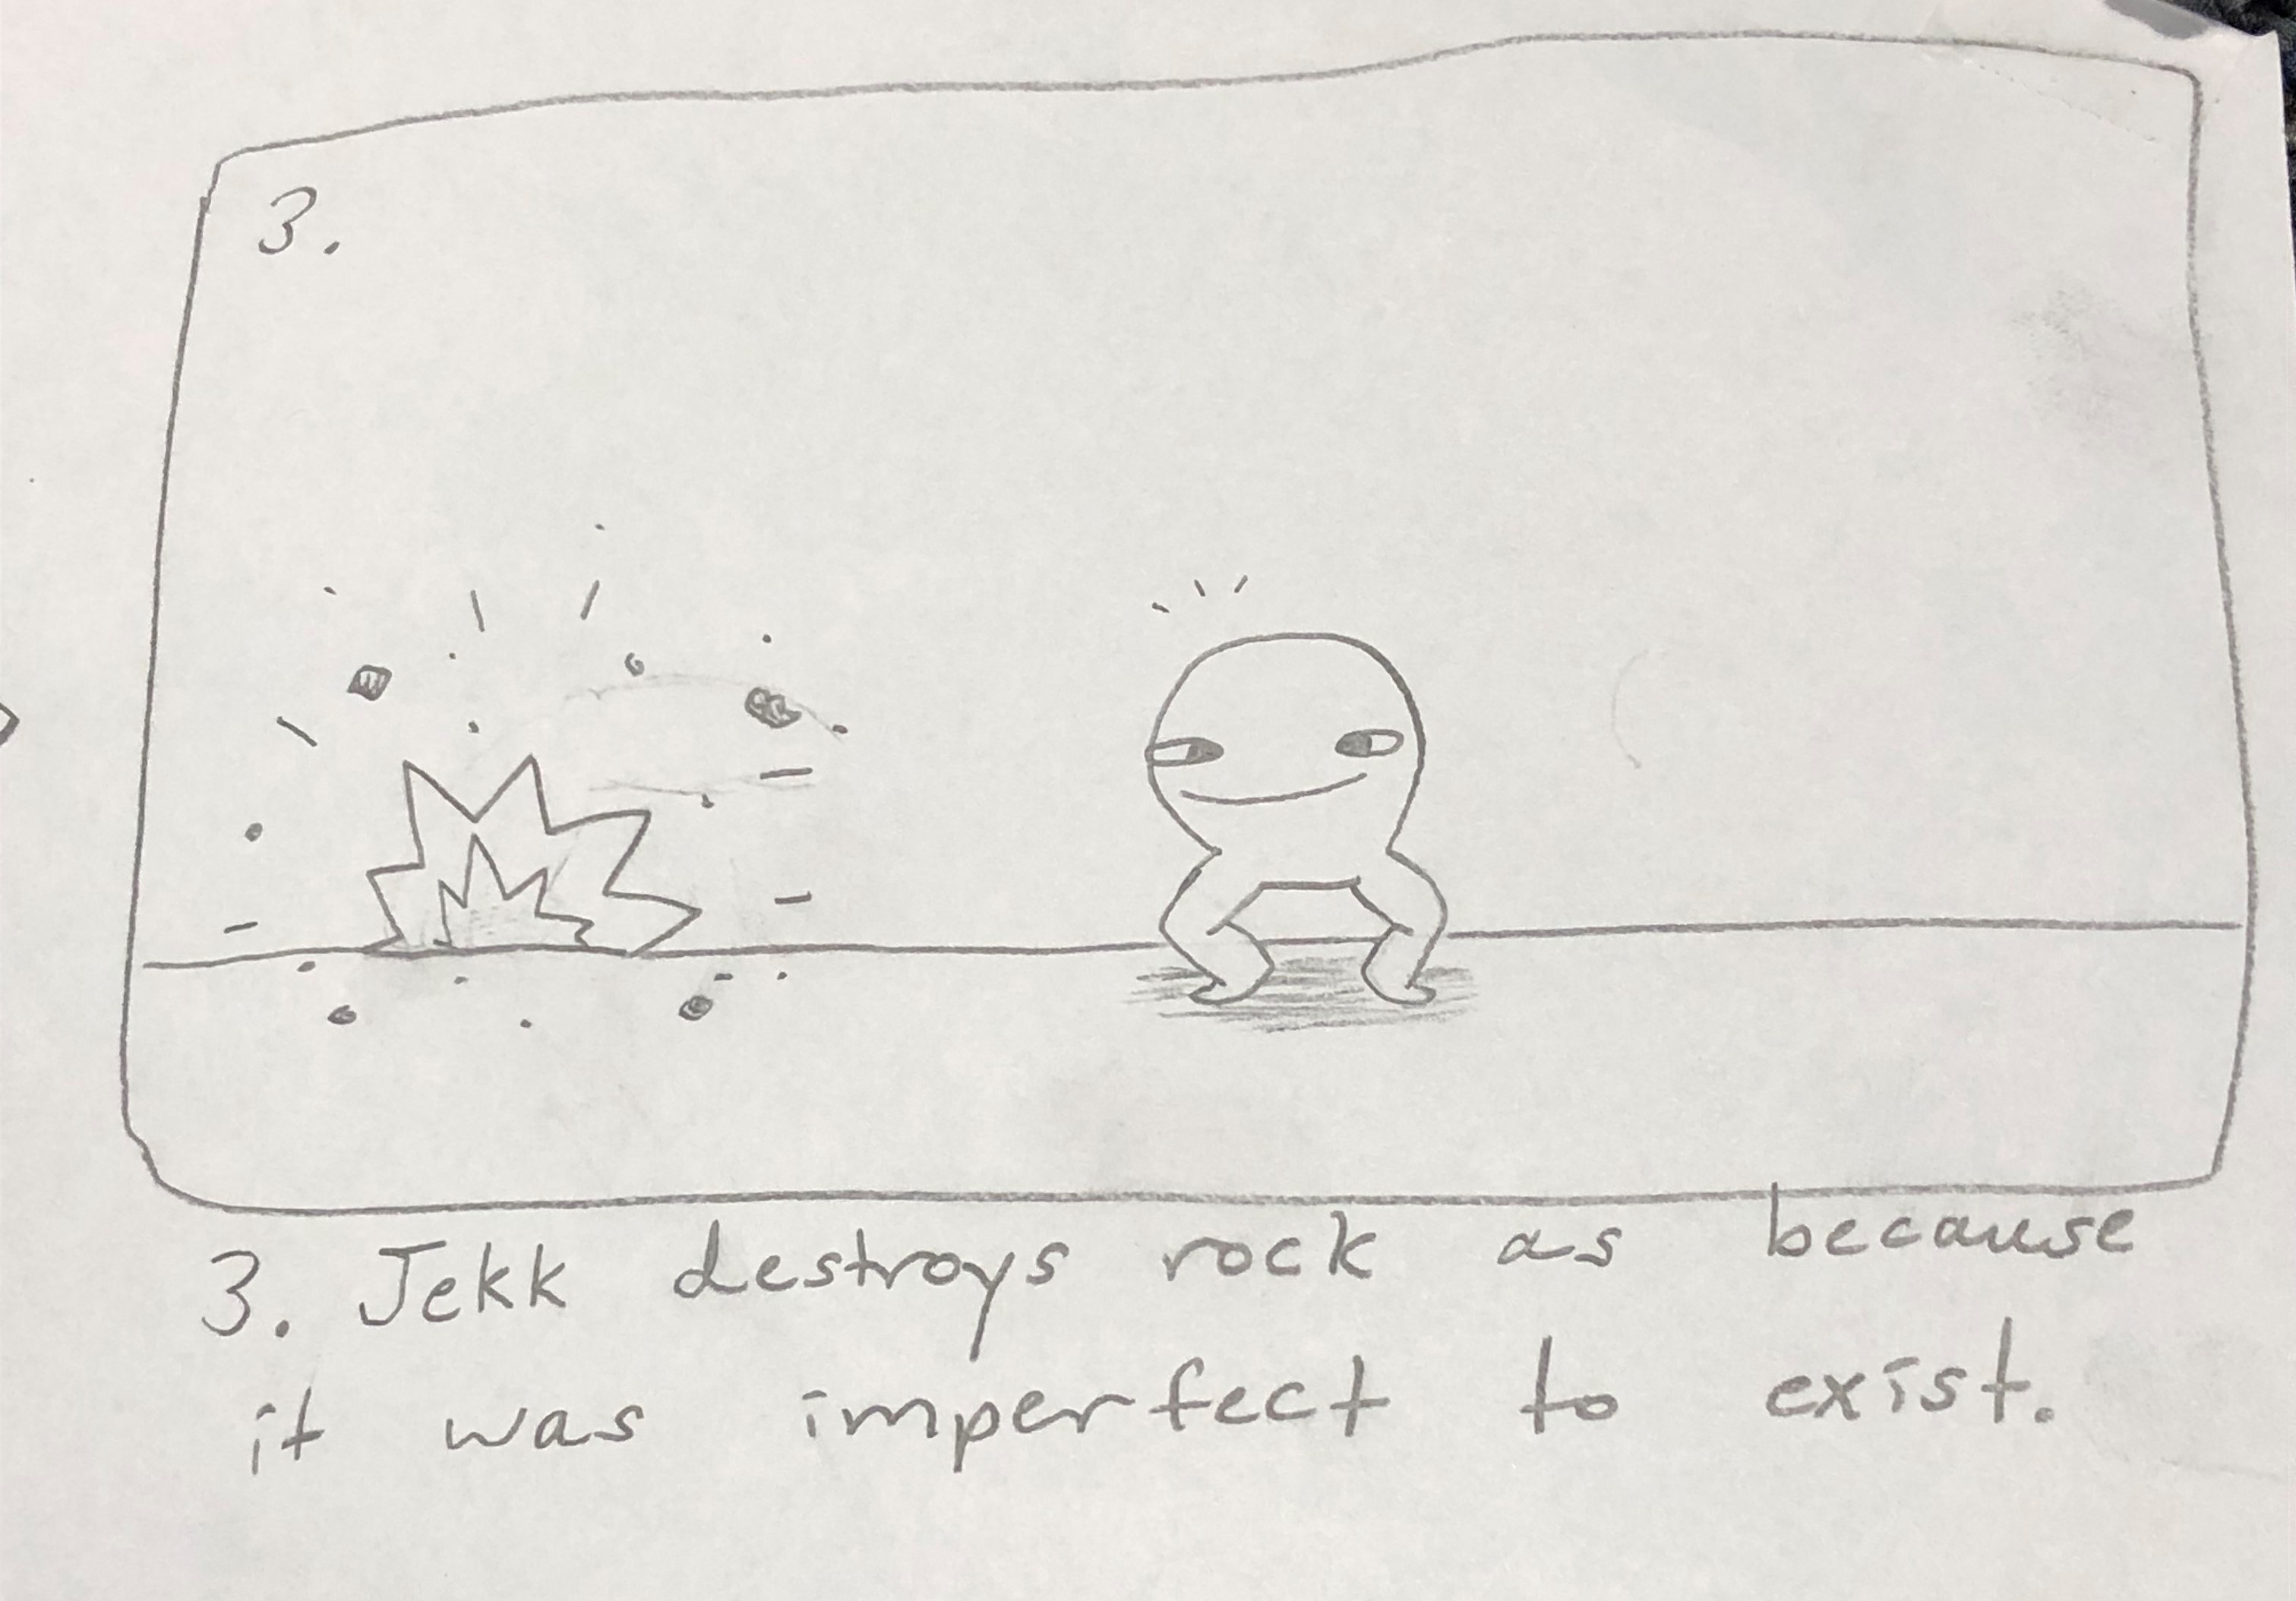 3.
3. Jekk destroys rock as because
it was imperfect to exist.